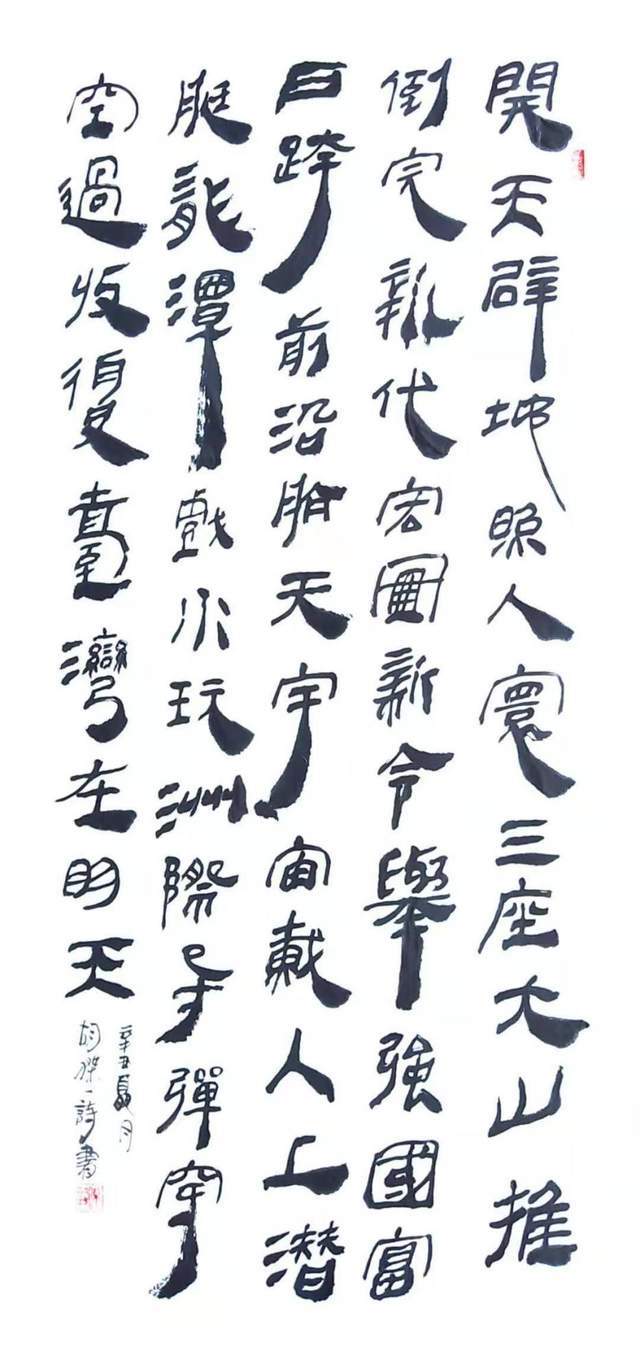 開天辟地照人寰三座大山推
倒完新代宏圖新令舉強國富
日跨前沿胸天宇宙載人上潜
艇龍潭戲水玩洲際導彈穿
空過收復臺灣在明天
辛丑夏月
胡傑一詩書